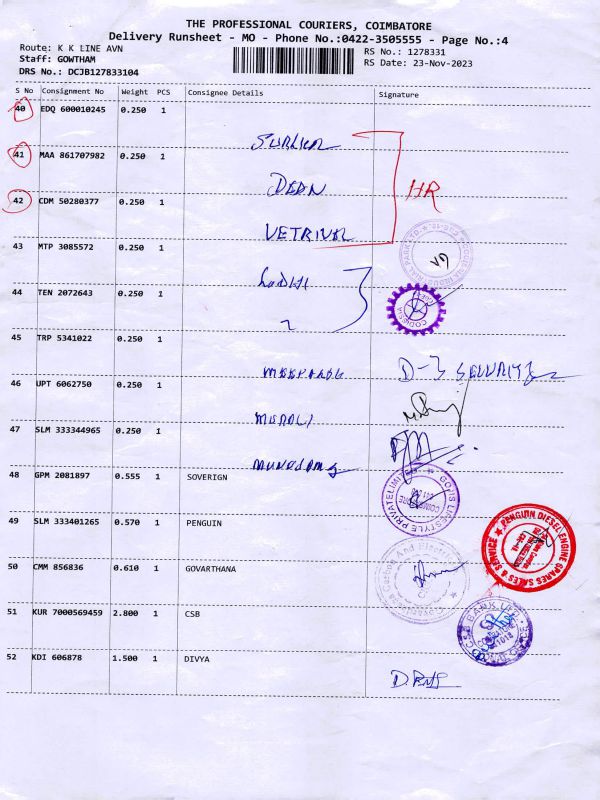 THE PROFESSIONAL COURIERS, COIMBATORE
Delivery Runsheet - MO - Phone No.:0422-3505555 - Page No.:4
Route: K K LINE AVN
RS No.: 1278331
Staff: GOWTHAM
RS Date: 23-Nov-2023
DRS No.: DCJB127833104
S No Consignment No Weight PCS Consignee Details Signature
40 EDQ 600010245 0.250 1
41 MAA 861707982 0.250 1
DEAN
HR
42 CDM 50280377 0.250 1
VETRIVEL
43 MTP 3085572 0.250 1
44 TEN 2072643 0.250 1
CODISSIA
45 TRP 5341022 0.250 1
D-3 SECURITY
46 UPT 6062750 0.250 1
MURALI
47 SLM 333344965 0.250 1
48 GPM 2081897 0.555 1 SOVERIGN
LIFESTYLE PRIVATE LIMITED
49 SLM 333401265 0.570 1 PENGUIN
PENGUIN DIESEL ENGINE SPARES SALES & SERVICE
50 CMM 856836 0.610 1 GOVARTHANA
51 KUR 7000569459 2.800 1 CSB
CSB BANK LTD
52 KDI 606878 1.500 1 DIVYA